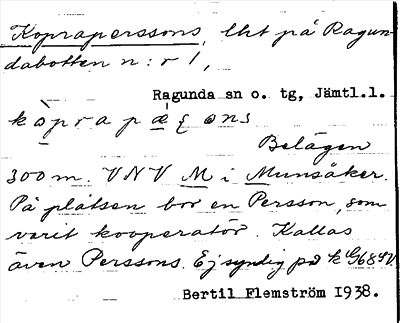 Koprapersson​s, lht på Ragun-
dabotten n:r 1,
Ragunda sn o. tg, Jämtl.l.
Belägen
300 m. VNV M i Munsåker.
På platsen bor en Persson, som
varit kooperatör. Kallas
även Perssons. Ej synlig på k
Bertil Flemström 1938.